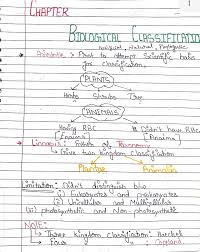 CHAPTER
1
BIOLOGICAL CLASSIFICATION
Artificial, Natural, Phylogenetic
Aristotle → First to attempt Scientific basis
for classification.
PLANTS
Herbs Shrubs Tree
ANIMALS
Having RBC Didn't have RBC
[Enaima] [Anaima]
Linnaeus: Father of Taxonomy
Give two kingdom classification
Plantae Animalia
Limitation: Didn't distinguish b/w
(i) Eukaryotes and prokaryotes
(ii) Unicellular and Multicellular
(iii) photosynthetic and Non-photosynthetic
NOTE:
→ Three kingdom classification: Haeckel
→ Four " " : Copland